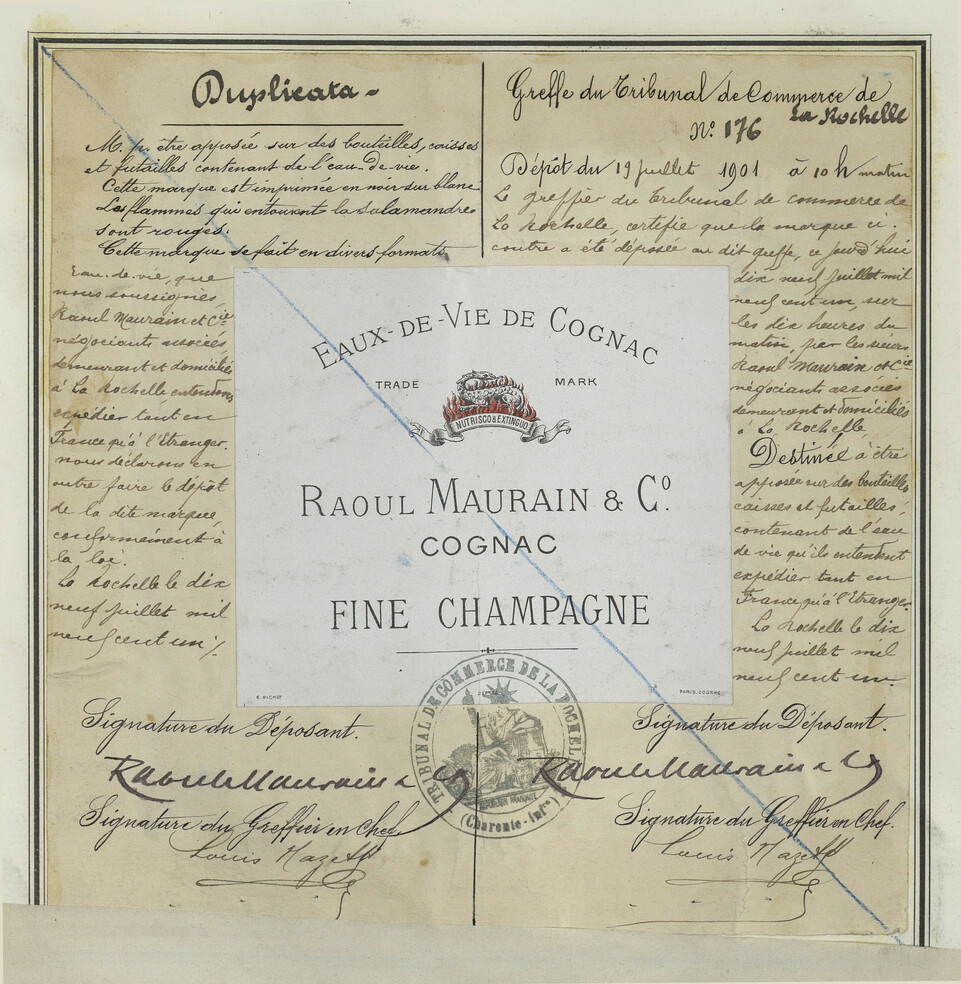 Duplicata -
M. p. être apposée sur des bouteilles, caisses
et futailles contenant de l'eau-de-vie.
Cette marque est imprimée en noir sur blanc
Les flammes qui entourent la salamandre
sont rouges.
Cette marque se fait en divers formats
Eau-de-vie, que
nous soussignés
Raoul Maurain et Cie
négociants associés
demeurant et domiciliés
à La Rochelle entendons
expédier tant en
France qu'à l'Etranger.
nous déclarons en
outre faire le dépôt
de la dite marque,
conformément à
la loi.
La Rochelle le dix
neuf juillet mil
neuf cent un ./.
Greffe du Tribunal de Commerce de
La Rochelle
No 176
Dépôt du 19 juillet 1901 à 10 h matin
Le greffier du Tribunal de commerce de
La Rochelle, certifie que la marque ci-
contre a été déposée au dit greffe, ce jourd'hui
dix neuf juillet mil
neuf cent un, sur
les dix heures du
matin, par les sieurs
Raoul Maurain et Cie
négociants associés
demeurant et domiciliés
à La Rochelle
Destinée à être
apposée sur des bouteilles
caisses et futailles,
contenant de l'eau
de vie qu'ils entendent
expédier tant en
France qu'à l'Etranger.
La Rochelle le dix
neuf juillet mil
neuf cent un.
EAUX-DE-VIE DE COGNAC
TRADE MARK
NUTRISCO & EXTINGUO
RAOUL MAURAIN & Co.
COGNAC
FINE CHAMPAGNE
E. PICHOT
PARIS. COGNAC
TRIBUNAL DE COMMERCE DE LA ROCHELLE
RÉPUBLIQUE FRANÇAISE
(Charente-Infre)
Signature du Déposant.
Raoul Maurain & Co
Signature du Greffier en Chef.
Louis
Signature du Déposant.
Raoul Maurain & Co
Signature du Greffier en Chef.
Louis